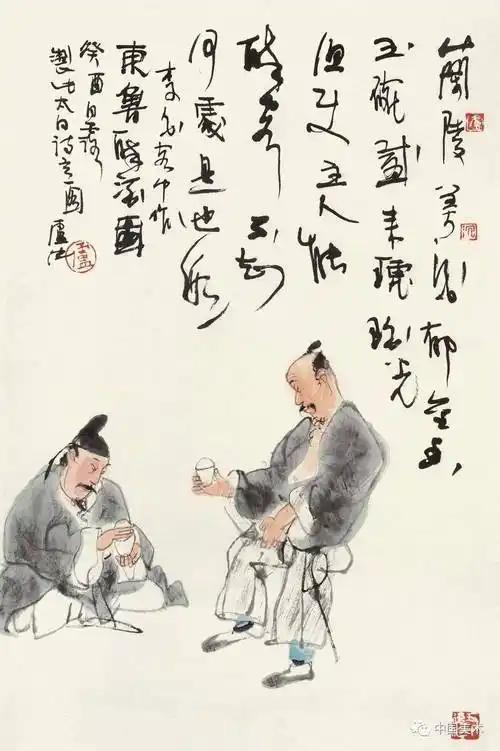 蘭陵美酒郁金香
玉碗盛来琥珀光
但使主人能
醉客不知
何處是他鄉
李白客中作
東魯醉圖
癸酉白露
製此太白詩意圖 盧沉
中国美术